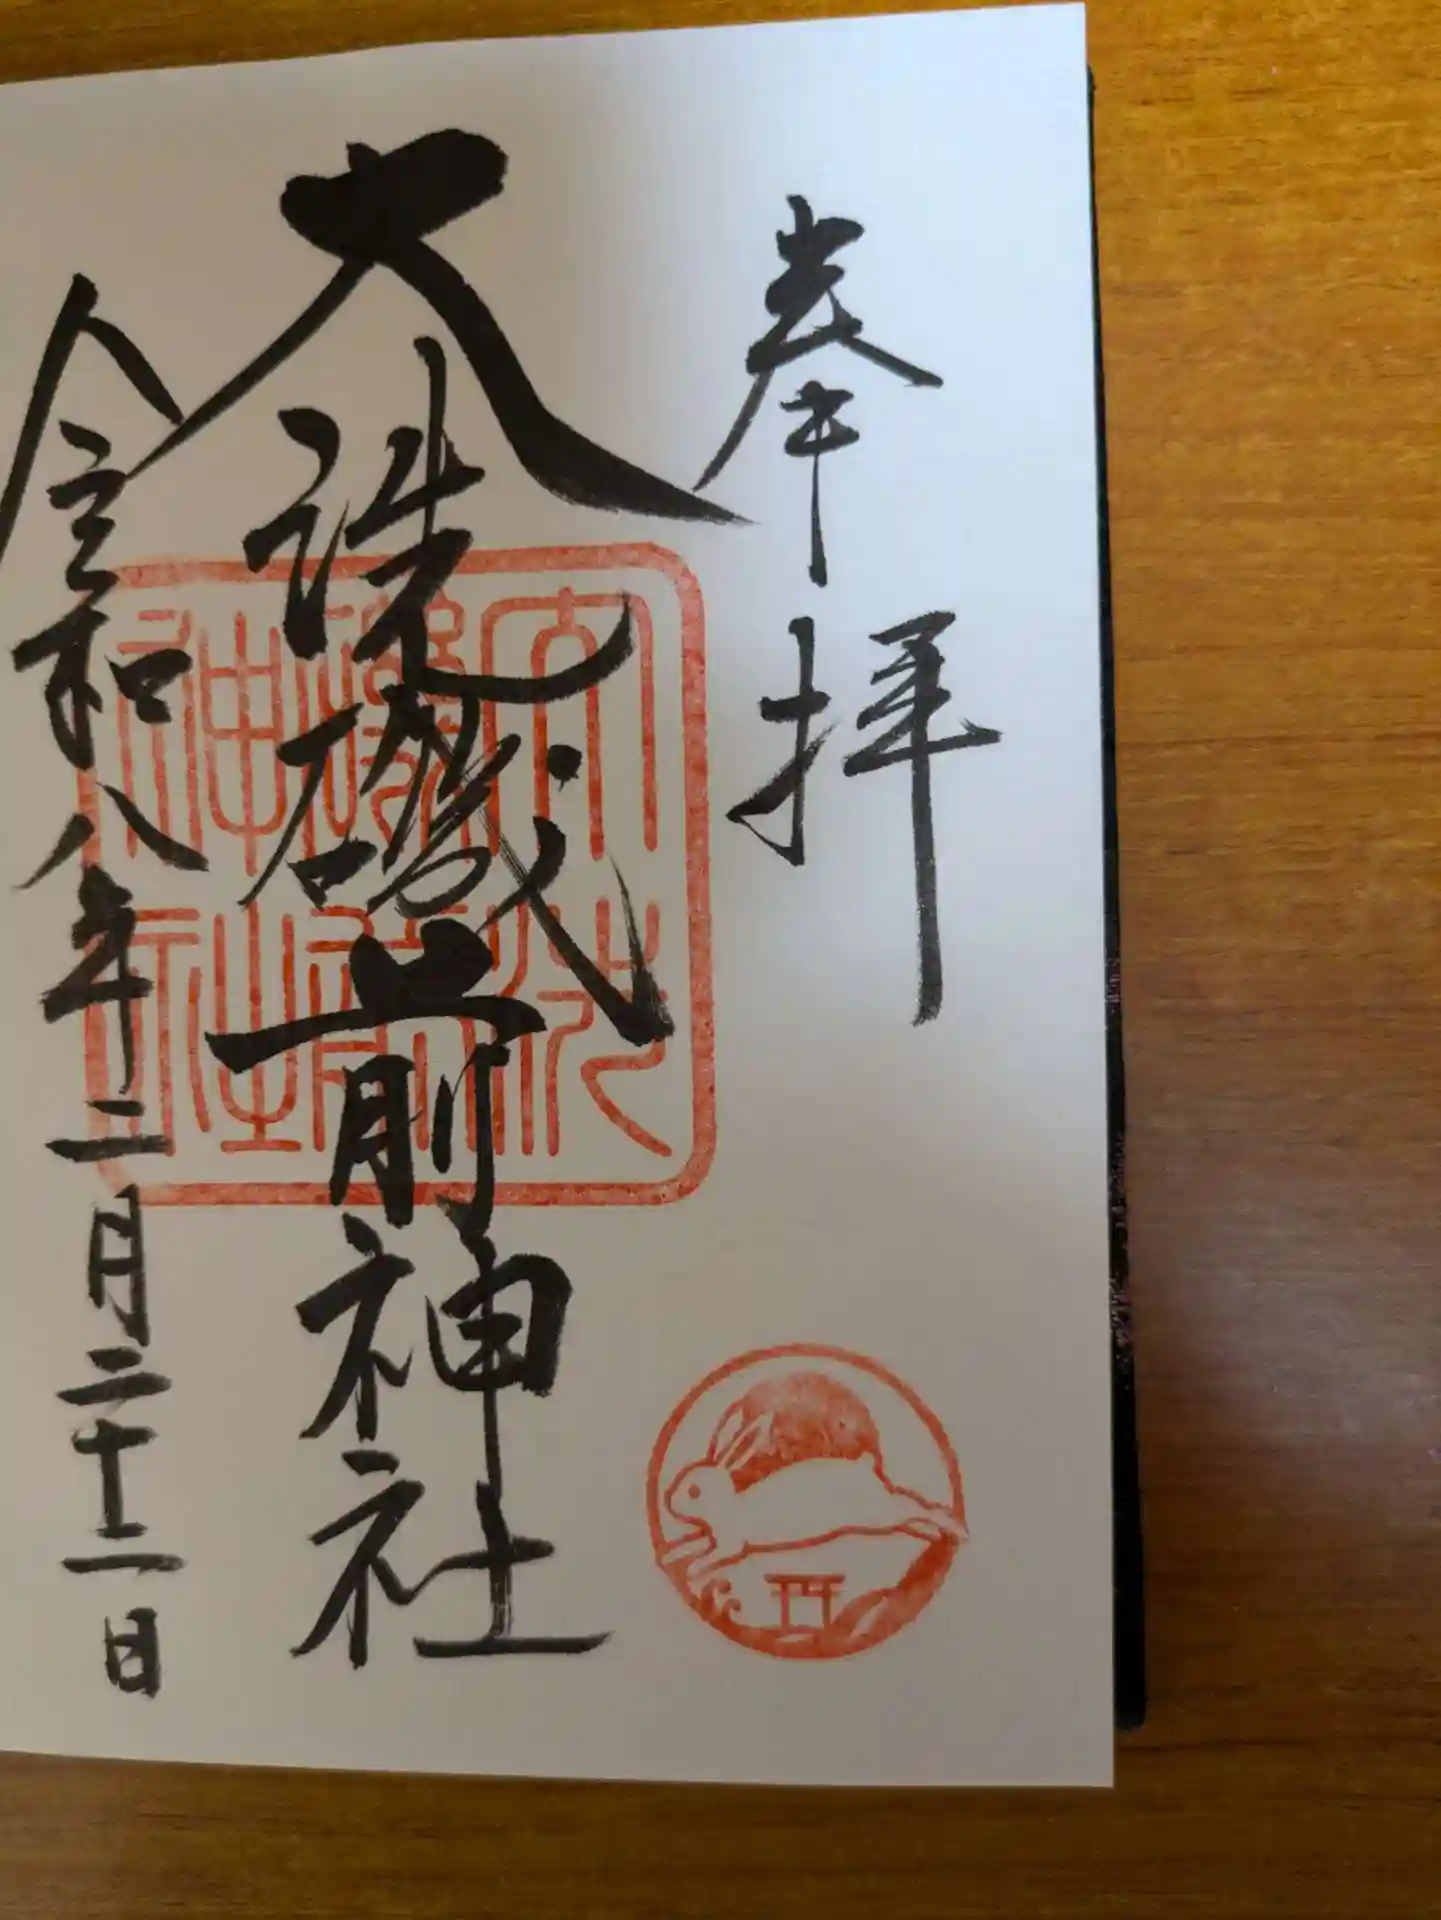 奉拝
大洗磯前神社
令和八年二月二十二日
大洗
磯前
神社